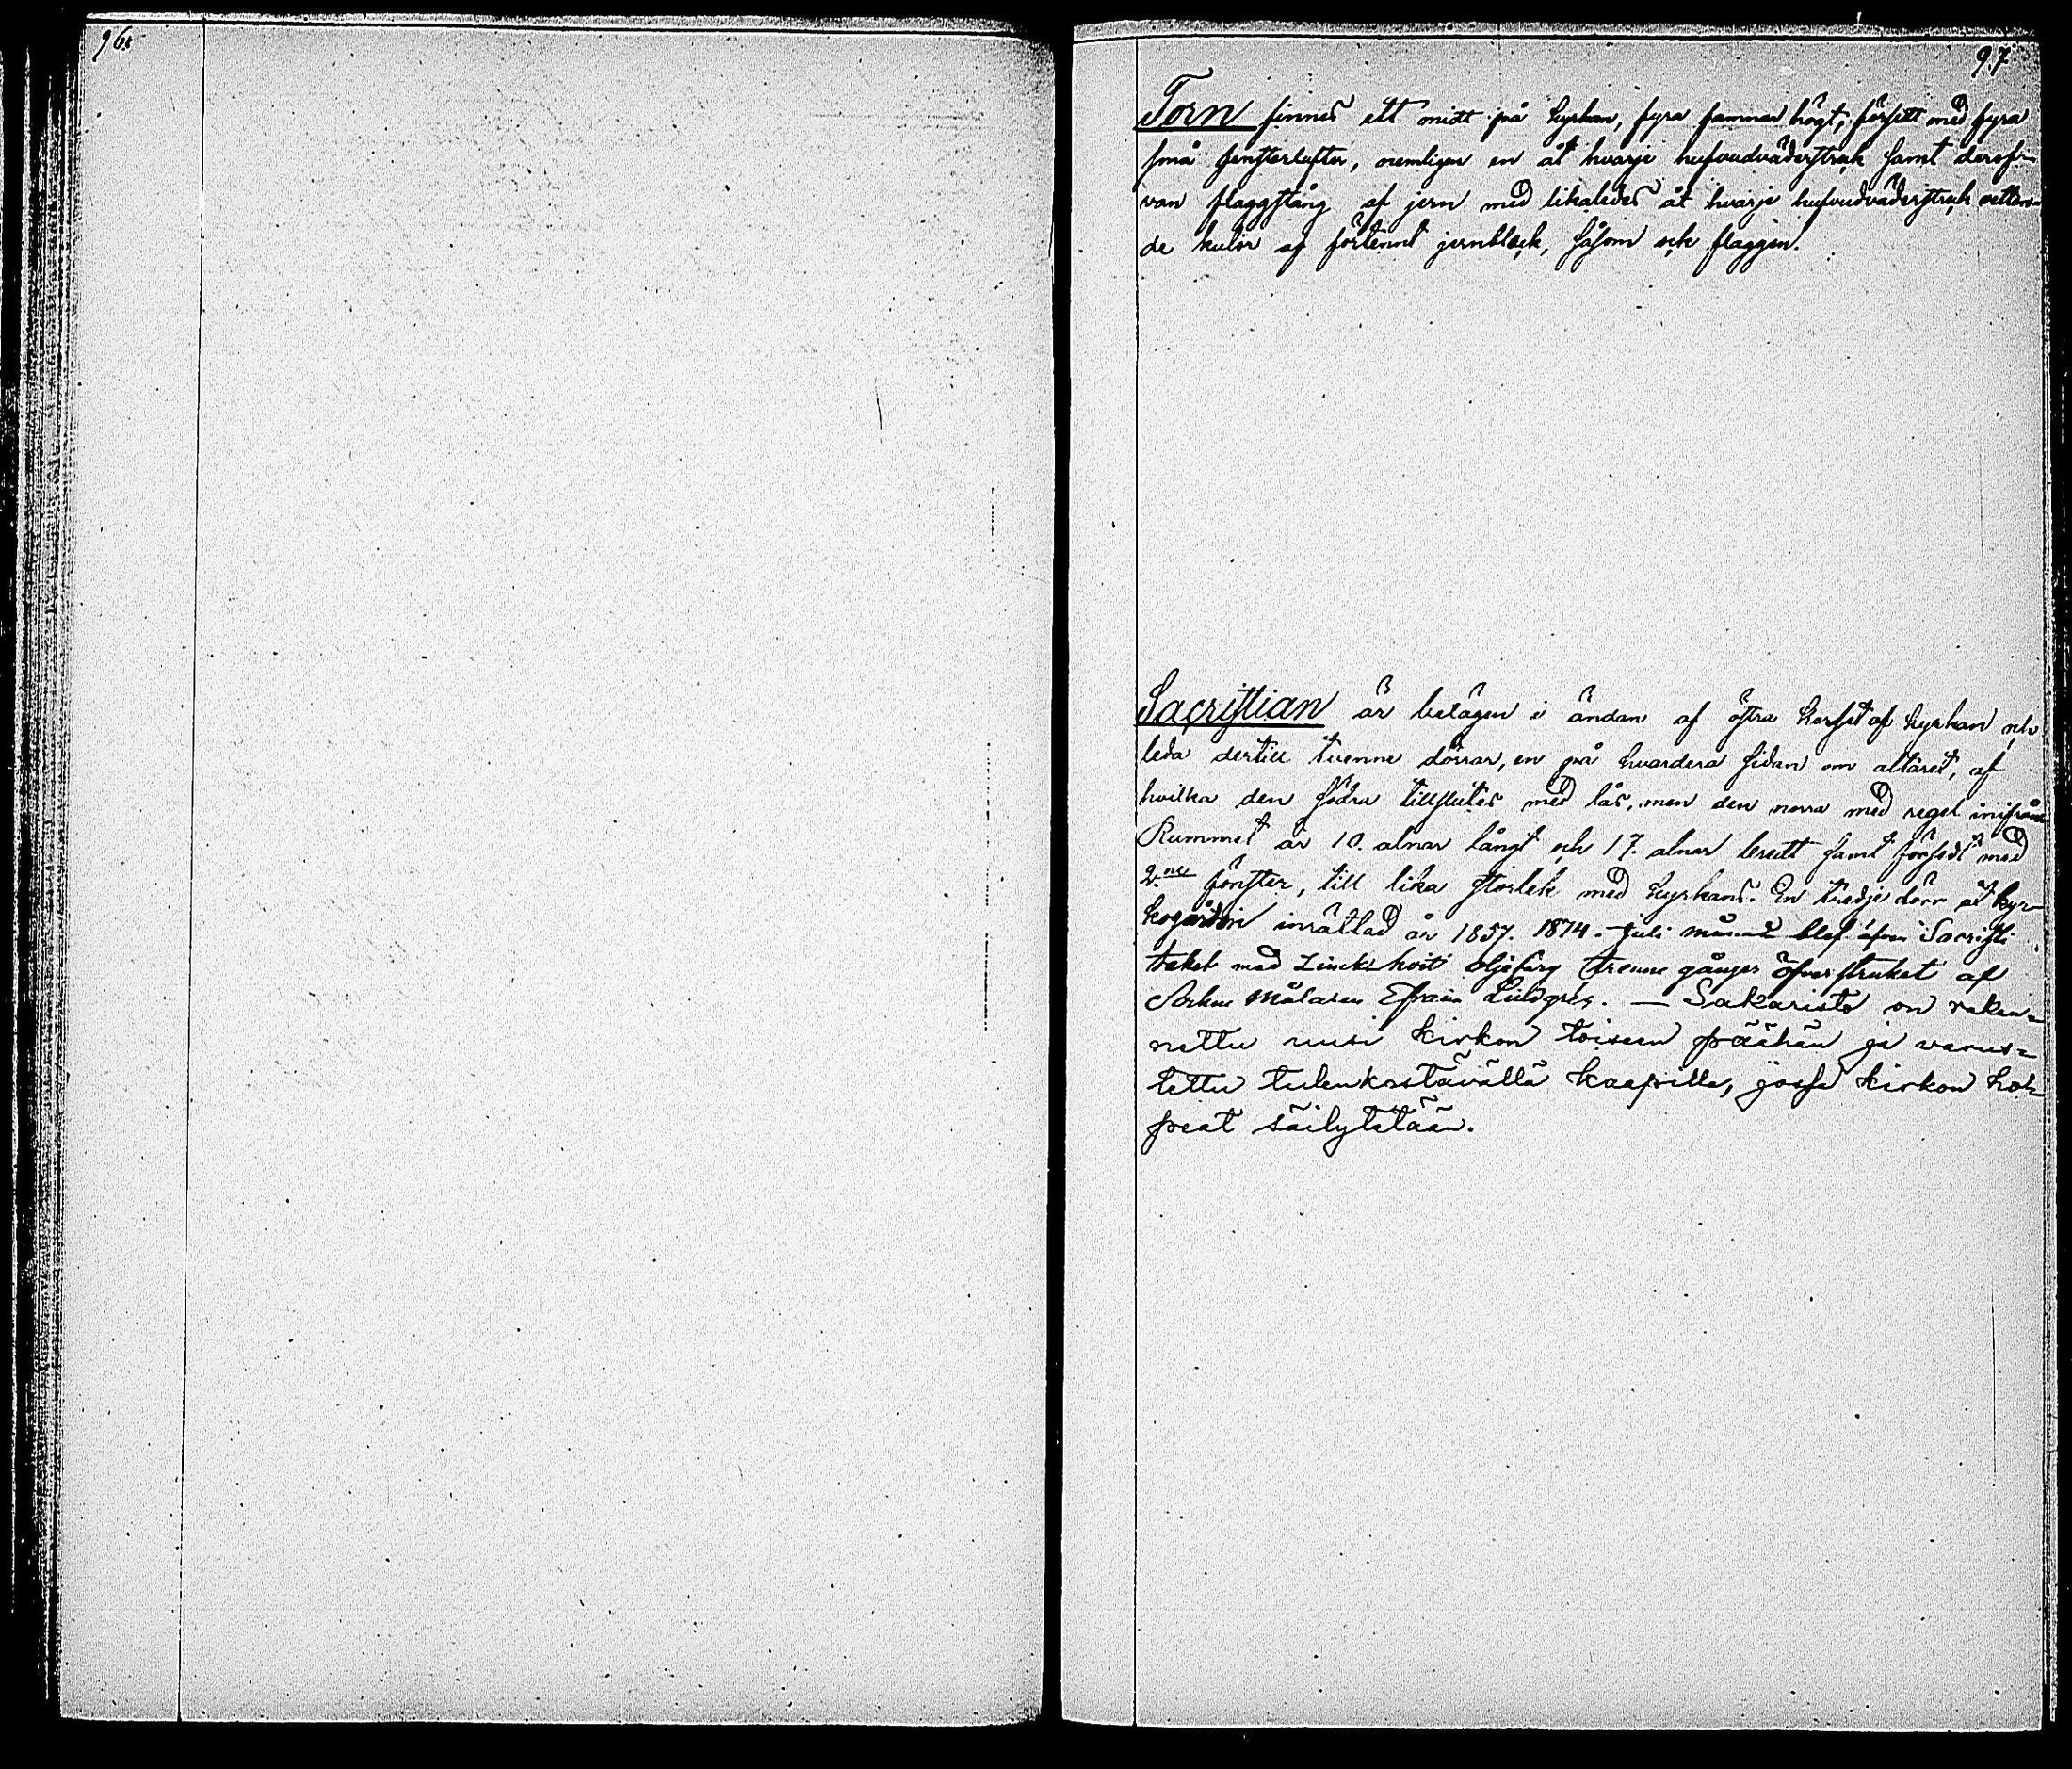 96.
97
Torn finnes ett midt på kyrkan, fyra famnar högt, försett med fyra
små fensterlufter, nemligen en åt hvarje hufvudväderstrek samt derof-
van flaggstång af jern med likaledes åt hvarje hufvudväderstrek vettan-
de kulor af förtennt jernbleck, såsom ock flaggan.
Sacristian är belägen i ändan af östra korset af kyrkan och
leda dertill tvenne dörrar, en på hvardera sidan om altaret, af
hvilka den södra tillslutes med lås, men den norra med regel inifrån
Rummet är 10. alnar långt och 17. alnar bredt samt försedt med
2.ne fönster, till lika storlek med kyrkans. En tredje dörr åt kyr-
kogården inrättad år 1857. 1874. Juli månad blef äfven Sacristi
taket med Zinckhvitt oljefärg trenne gånger öfverstruket af
Socknemålaren Efraim Lindgrén. — Sakaristo on raken-
nettu uusi kirkon toiseen päähän ja varus-
tettu tulenkestävällä kaapilla, jossa kirkon ho-
peat säilytetään.